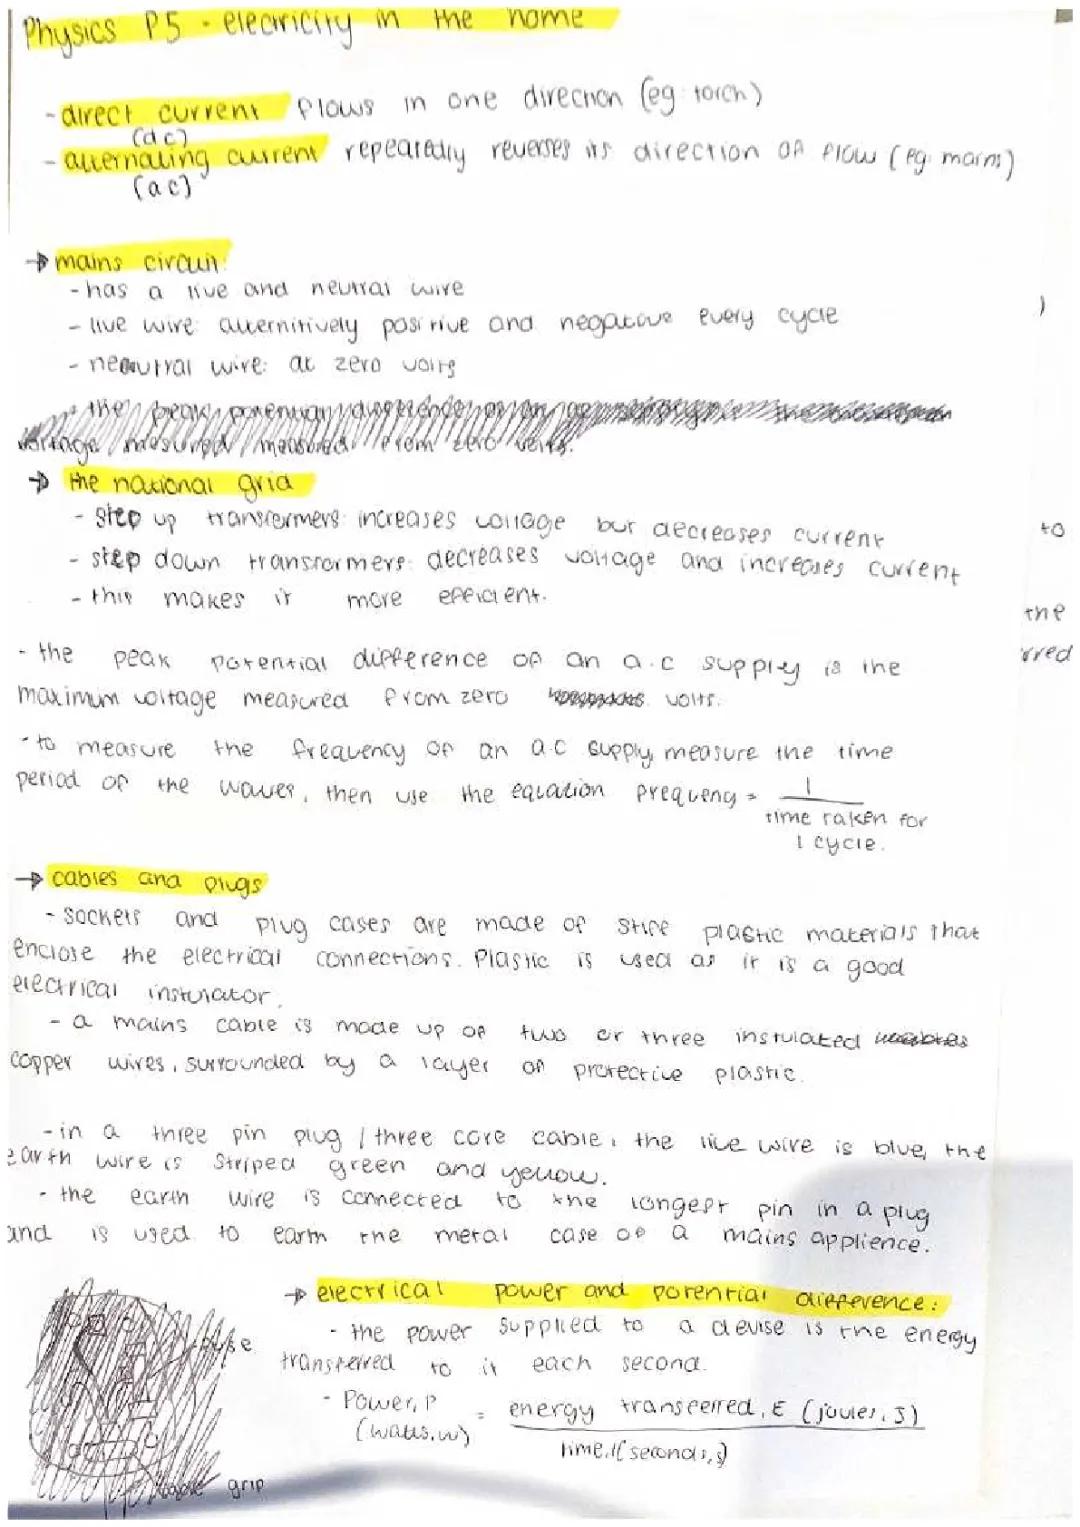 Physics P5 - electricity in the home
- direct current flows in one direction (eg: torch)
(dc)
- alternating current repeatedly reverses its direction of flow (eg. mains)
(ac)
→ mains circuit:
- has a live and neutral wire
- live wire: alternitively positive and negative every cycle
- neutral wire: at zero volts
the peak potential difference of an
voltage mesured measured from zero volts.
→ the national grid
- step up transformers: increases voltage but decreases current
- step down transformers: decreases voltage and increases current
- this makes it more efficient.
- the peak potential difference of an a.c supply is the
maximum voltage measured from zero volts.
- to measure the frequency of an a.c supply, measure the time
period of the waves, then use the equation frequency = 1
time taken for
1 cycle.
→ cables and plugs
- sockets and plug cases are made of stiff plastic materials that
enclose the electrical connections. Plastic is used as it is a good
electrical instulator.
- a mains cable is made up of two or three instulated
copper wires, surrounded by a layer of protective plastic.
- in a three pin plug / three core cable, the live wire is blue, the
earth wire is striped green and yellow.
- the earth wire is connected to the longest pin in a plug
and is used to earth the metal case of a mains applience.
→ electrical power and potential difference:
- the power supplied to a devise is the energy
transferred to it each second.
- Power, P = energy transferred, E (joules, J)
(watts, w) time, t (seconds, s)
fuse
cable grip
)
to
the
rred